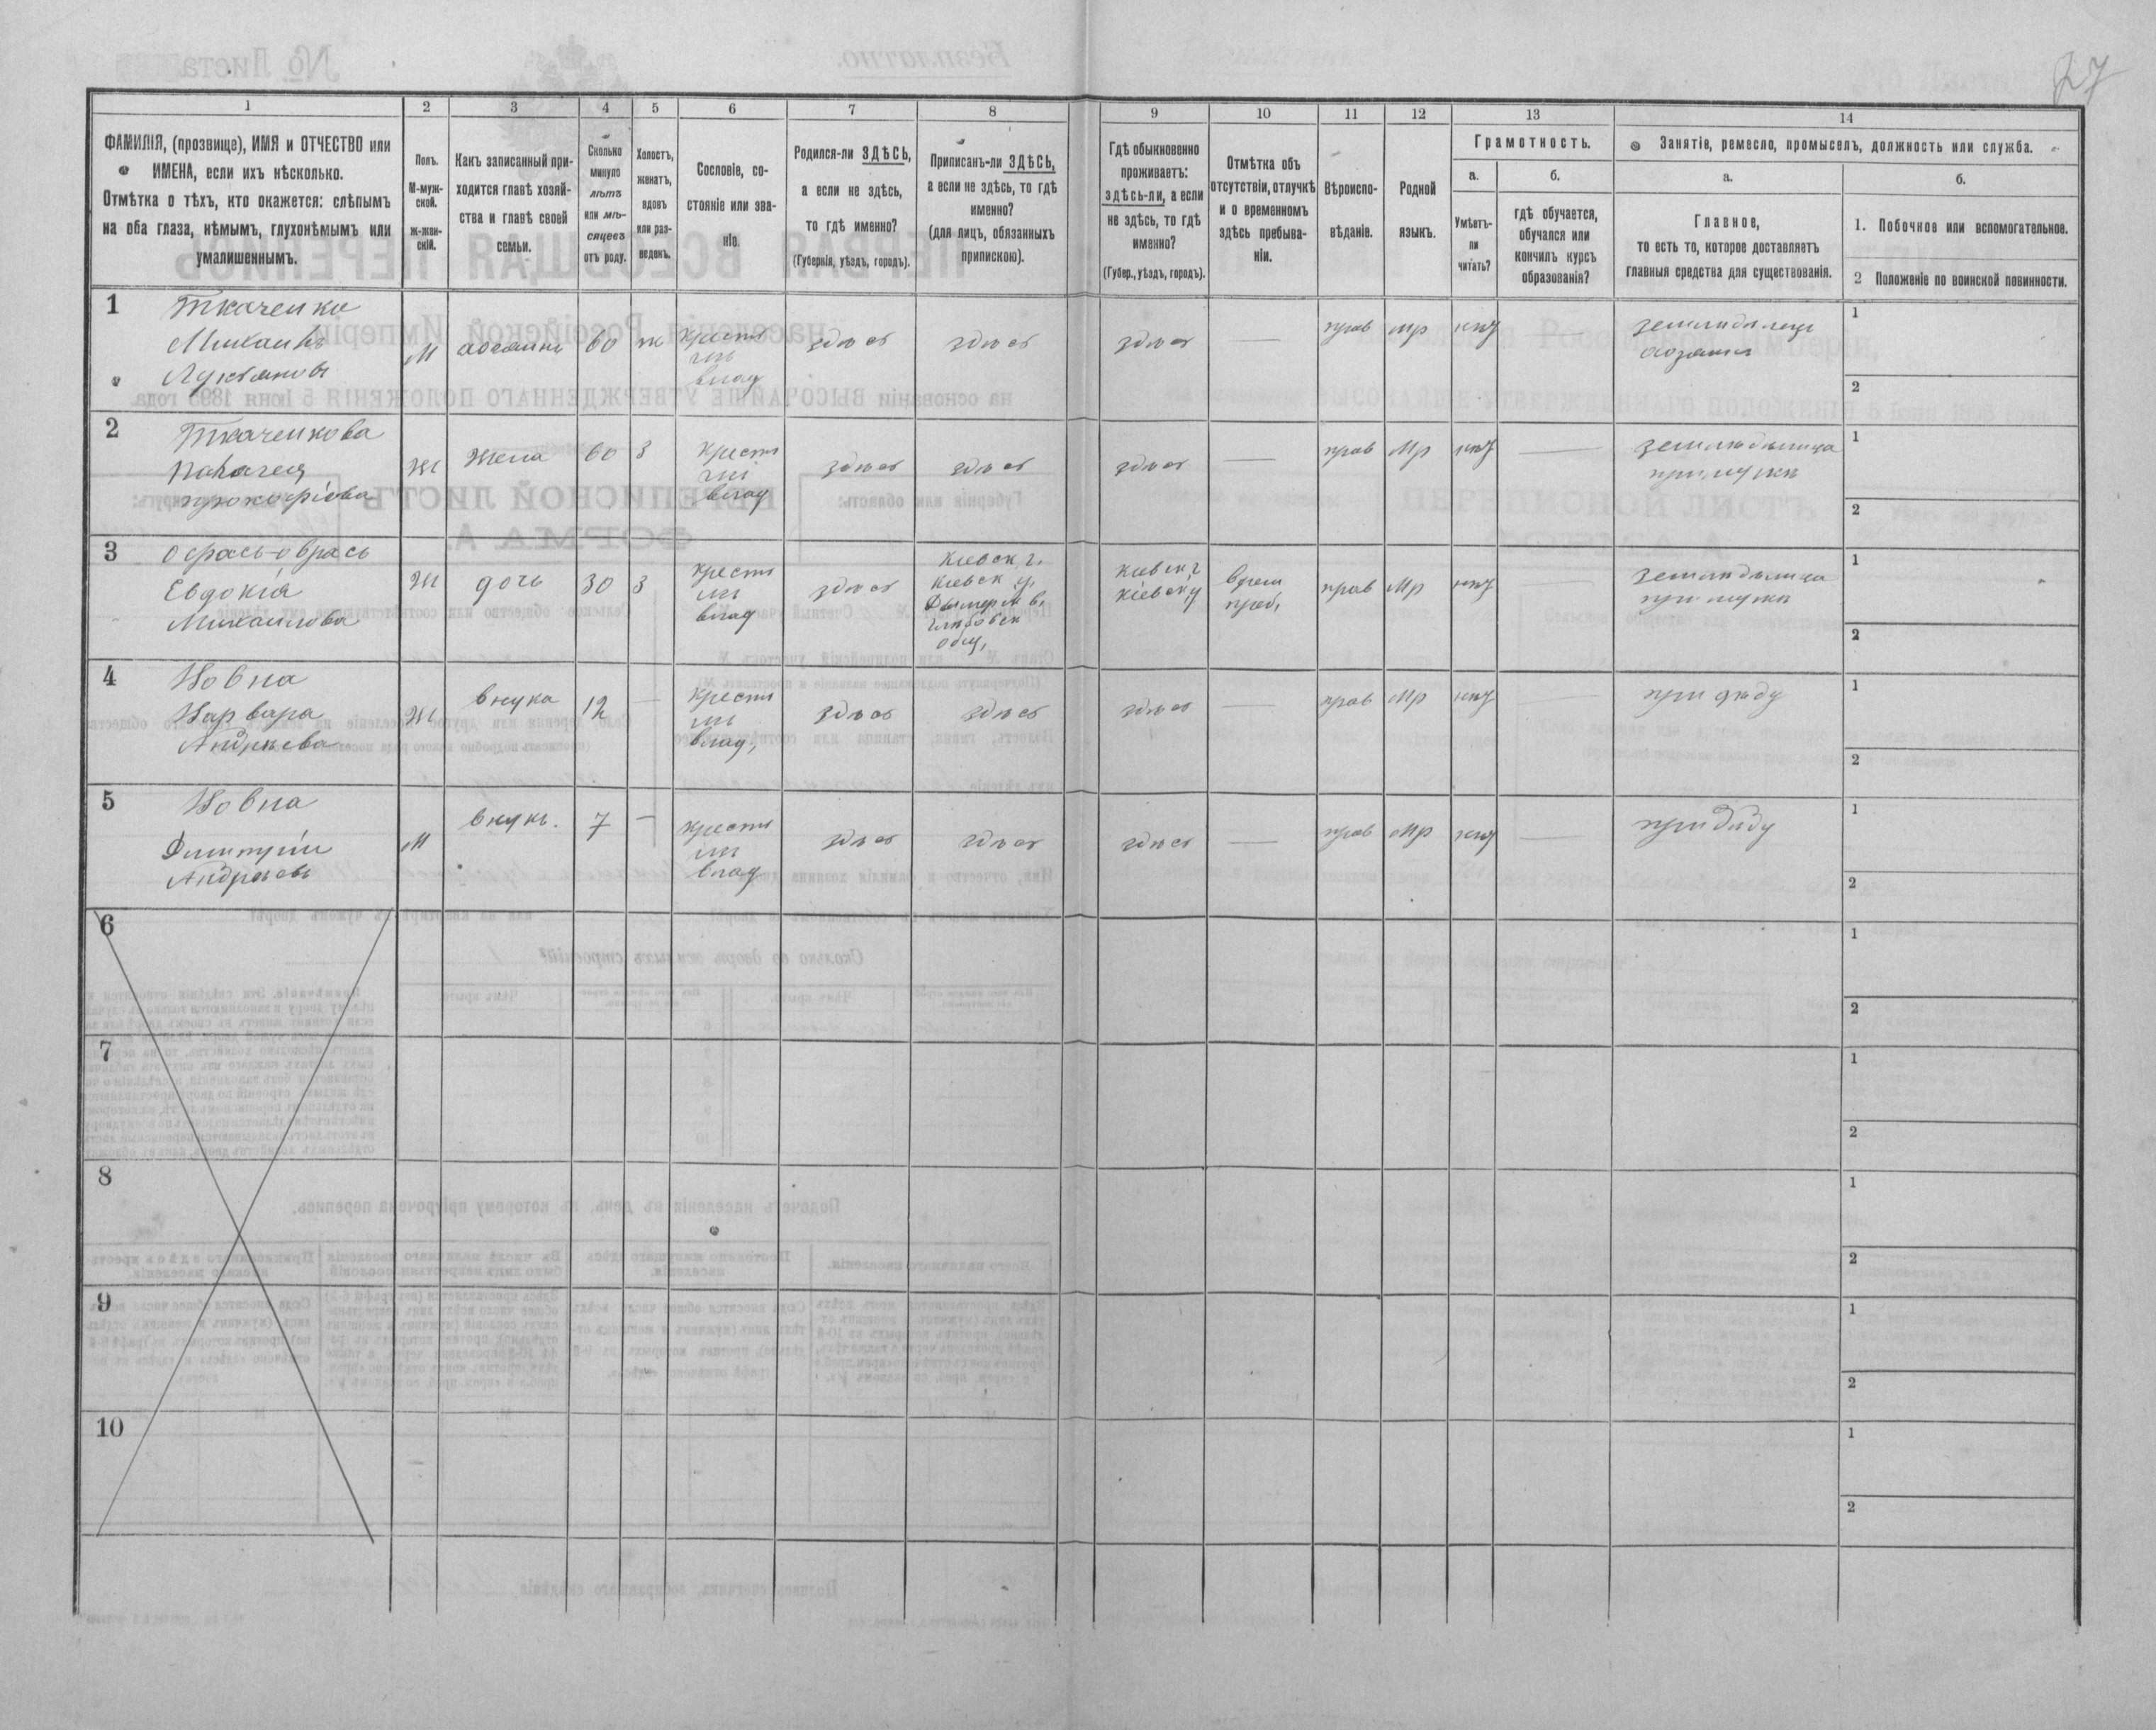 27
1 2 3 4 5 6 7 8 9 10 11 12 13 14
ФАМИЛІЯ, (прозвище), ИМЯ и ОТЧЕСТВО или
ИМЕНА, если ихъ нѣсколько.
Отмѣтка о тѣхъ, кто окажется: слѣпымъ
на оба глаза, нѣмымъ, глухонѣмымъ или
умалишеннымъ.
Полъ.
М-муж-
ской.
ж-жен-
скій.
Какъ записанный при-
ходится главѣ хозяй-
ства и главѣ своей
семьи.
Сколько
минуло
лѣтъ
или мѣ-
сяцевъ
отъ роду.
Холостъ,
женатъ,
вдовъ
или раз-
веденъ.
Сословіе, со-
стояніе или зва-
ніе.
Родился-ли ЗДѢСЬ,
а если не здѣсь,
то гдѣ именно?
(Губернія, уѣздъ, городъ).
Приписанъ-ли ЗДѢСЬ,
а если не здѣсь, то гдѣ
именно?
(для лицъ, обязанныхъ
припискою).
Гдѣ обыкновенно
проживаетъ:
здѣсь-ли, а если
не здѣсь, то гдѣ
именно?
(Губер., уѣздъ, городъ).
Отмѣтка объ
отсутствіи, отлучкѣ
и о временномъ
здѣсь пребыва-
ніи.
Вѣроиспо-
вѣданіе.
Родной
языкъ.
Грамотность.
а.
Умѣетъ-
ли
читать?
б.
гдѣ обучается,
обучался или
кончилъ курсъ
образованія?
Занятіе, ремесло, промыселъ, должность или служба.
а.
Главное,
то есть то, которое доставляетъ
главныя средства для существованія.
б.
1. Побочное или вспомогательное.
2 Положеніе по воинской повинности.
1
Ткаченко
Михаилъ
Лукьяновъ
М
хозяинъ
60
ж
крестя
влад
здѣсь
здѣсь
здѣсь
—
прав
мр
нѣт
—
земледѣлецъ
хозяинъ
1
2
2
Ткаченкова
прокофіева
Ж
Жена
60
З
крест
влад
здѣсь
здѣсь
здѣсь
—
прав
Мр
нѣт
—
земледѣлица
при мужѣ
1
2
3
Евдокія
Михаилова
Ж
дочь
30
З
крестя
влад
здѣсь
Кіевск г.
Кіевск у,
Дымерск в.
общ,
Кіевск г
Кіевск у
врем
преб,
прав
Мр
нѣт
—
земледѣлица
при мужѣ
1
2
4
Вовна
Варвара
Андреева
Ж
внука
12
—
крестя
влад,
здѣсь
здѣсь
здѣсь
—
прав
Мр
нѣт
—
при дѣду
1
2
5
Вовна
Димитрій
Андреевъ
М
внукъ.
7
—
крестя
влад
здѣсь
здѣсь
здѣсь
—
прав
Мр
нѣт
—
при дѣду
1
2
6
1
2
7
1
2
8
1
2
9
1
2
10
1
2